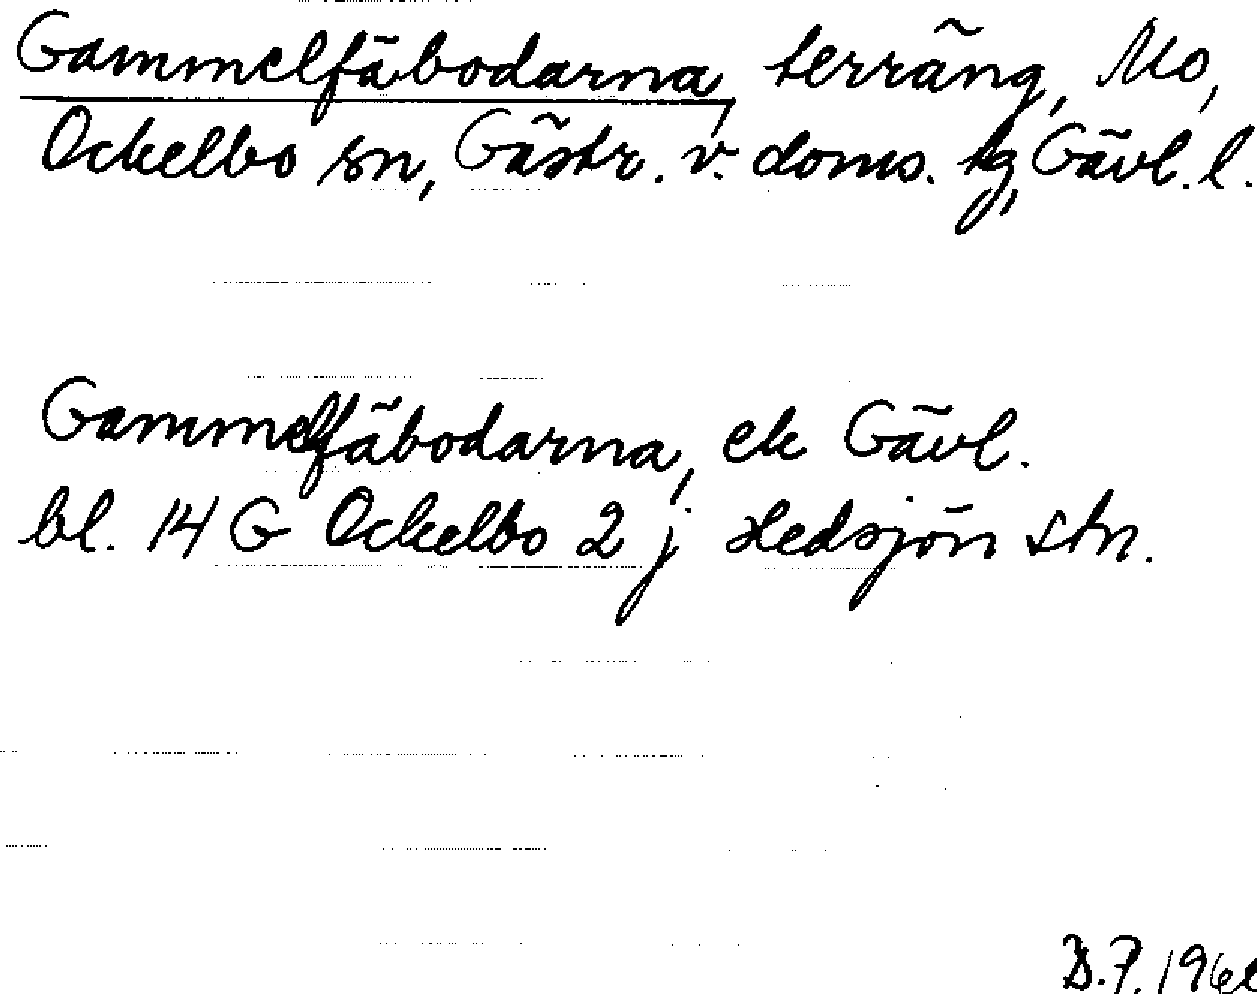 Gammelfäbodarna, terräng, Mo,
Ockelbo sn, Gästr. v. doms. tg, Gävl. l.
Gammelfäbodarna, ek Gävl.
bl. 14 G Ockelbo 2 j Hedsjön stn.